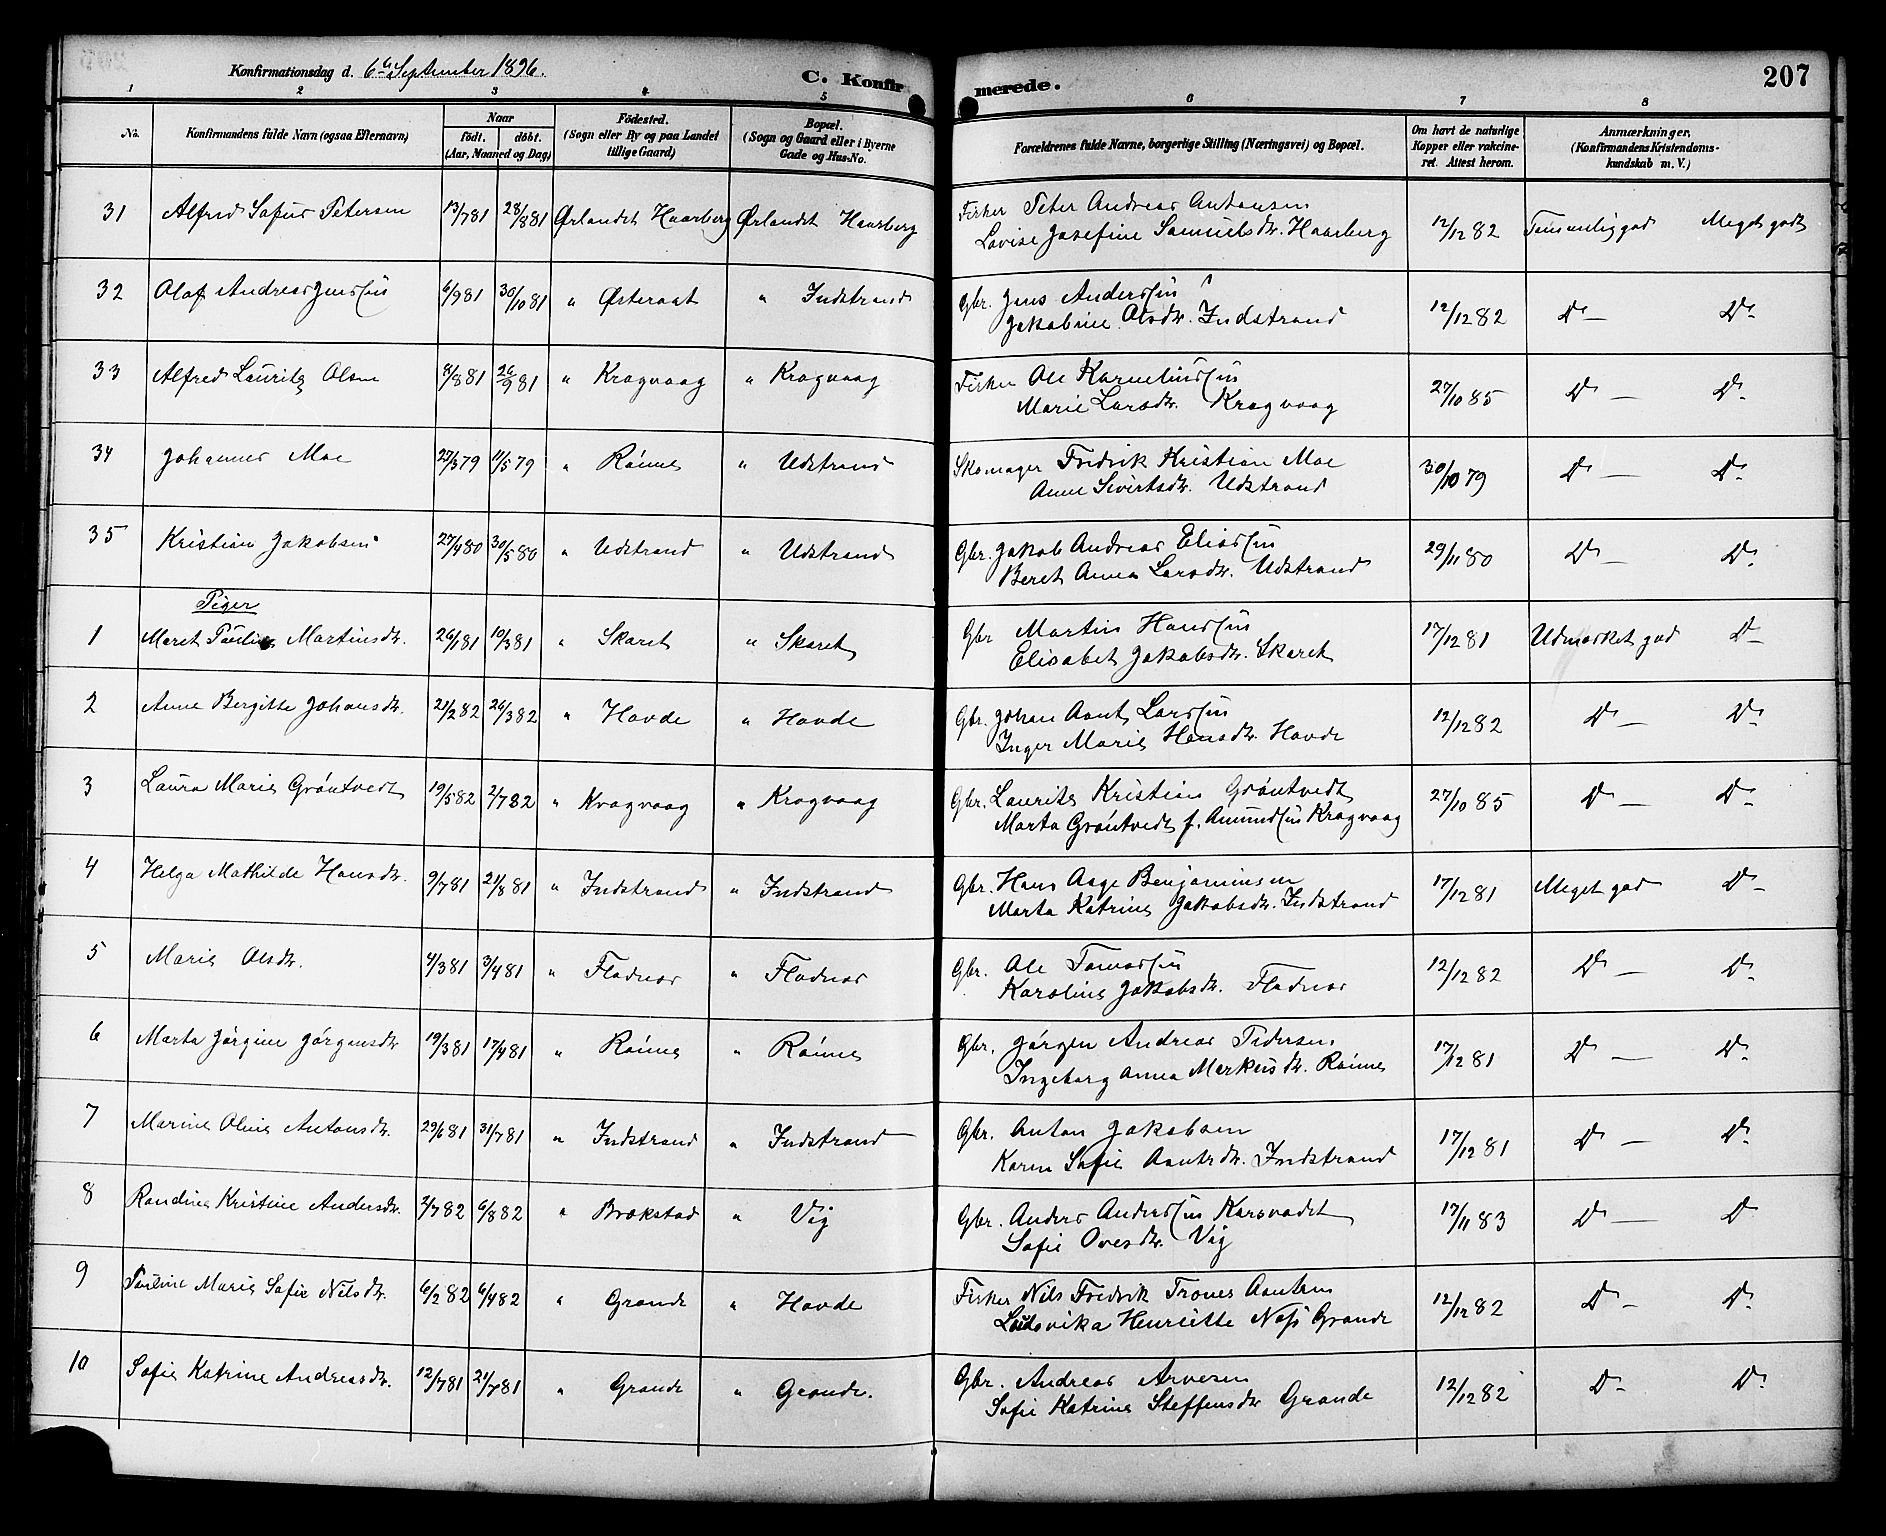 Konfirmationsdag d. 6te September 1896. C. Konfirmerede. 207
1 2 3 4 5 6 7 8
No. Konfirmandens fulde Navn (ogsaa Efternavn) Naar født. døbt. (Aar, Maaned og Dag) Fødested. (Sogn eller By og paa Landet tillige Gaard) Bopæl. (Sogn og Gaard eller i Byerne Gade og Hus-No. Forældrenes fulde Navne, borgerlige Stilling (Næringsvei) og Bopæl. Om havt de naturlige Kopper eller vakcineret. Attest herom. Anmærkninger. (Konfirmandens Kristendomskundskab m. V.)
31 Alfred Sofus Petersen 13/7 81 28/8 81 Ørlandet Haarberg Ørlandet Haarberg Fisker Peter Andreas Antonsen
Lovise Josefine Samuelsdtr. Haarberg 12/12 82 Temmelig god Meget godt
32 Olaf Andreas Jenssen 6/9 81 30/10 81 " Østeraat " Indstrand Gbr. Jens Anderssen
Jakobine Olsdtr. Indstrand 12/12 82 Do — Do
33 Alfred Laurits Olsen 8/8 81 26/9 81 " Kragvaag " Kragvaag Fisker Ole Korneliussen
Marie Larsdtr. Kragvaag 27/10 85 Do — Do
34 Johannes Moe 23/3 79 11/5 79 " Rønne " Udstrand Skomager Fredrik Kristian Moe
Anne Sivertsdtr. Udstrand 30/10 79 Do — Do
35 Kristian Jakobsen 27/4 80 30/5 80 " Udstrand " Udstrand Gbr. Jakob Andreas Eliassen
Beret Anna Larsdtr. Udstrand 29/11 80 Do — Do
Piger
1 Meret Pauline Martinsdtr. 26/1 81 10/3 81 " Skaret " Skaret Gbr Martin Hanssen
Elisabet Jakobsdtr. Skaret 17/12 81 Udmærket god Do
2 Anne Bergitte Johansdtr. 21/2 82 26/3 82 " Hovde " Hovde Gbr. Johan Aant Larssen
Inger Marie Hansdtr. Hovde 12/12 82 Do — Do
3 Laura Marie Grøntvedt 19/5 82 2/7 82 " Kragvaag " Kragvaag Gbr. Laurits Kristian Grøntvedt
Marta Grøntvedt f. Amundsen Kragvaag 27/10 85 Do — Do
4 Helga Mathilde Hansdtr. 9/7 81 21/8 81 " Indstrand " Indstrand Gbr. Hans Aage Benjaminsen
Marta Katrine Jakobsdtr. Indstrand 17/12 81 Meget god Do
5 Marie Olsdtr. 4/3 81 3/4 81 " Fladnes " Fladnes Gbr. Ole Tomassen
Karoline Jakobsdtr. Fladnes 12/12 82 Do — Do
6 Marta Jørgine Jørgensdtr 19/3 81 17/4 81 " Rønne " Rønne Gbr. Jørgen Andreas Pedersen
Ingeborg Anna Merkusdtr. Rønne 17/12 81 Do — Do
7 Marine Oline Antonsdtr. 29/6 81 31/7 81 " Indstrand " Indstrand Gbr. Anton Jakobsen
Karen Sofie Aantsdtr. Indstrand 17/12 81 Do — Do
8 Randine Kristine Andersdtr. 2/7 82 6/8 82 " Brækstad " Vig Gbr. Anders Anderssen Karsvadet
Sofie Ovesdtr. Vig 17/11 83 Do — Do
9 Pauline Marie Sofie Nilsdtr. 6/2 82 6/4 82 " Grande " Hovde Fisker Nils Fredrik Trones
Ludovika Henriette Grande 12/12 82 Do — Do
10 Sofie Katrine Andreasdtr. 12/7 81 21/7 81 " Grande " Grande. Gbr. Andreas Arvesen
Sofie Katrine Steffensdtr Grande 12/12 82 Do — Do